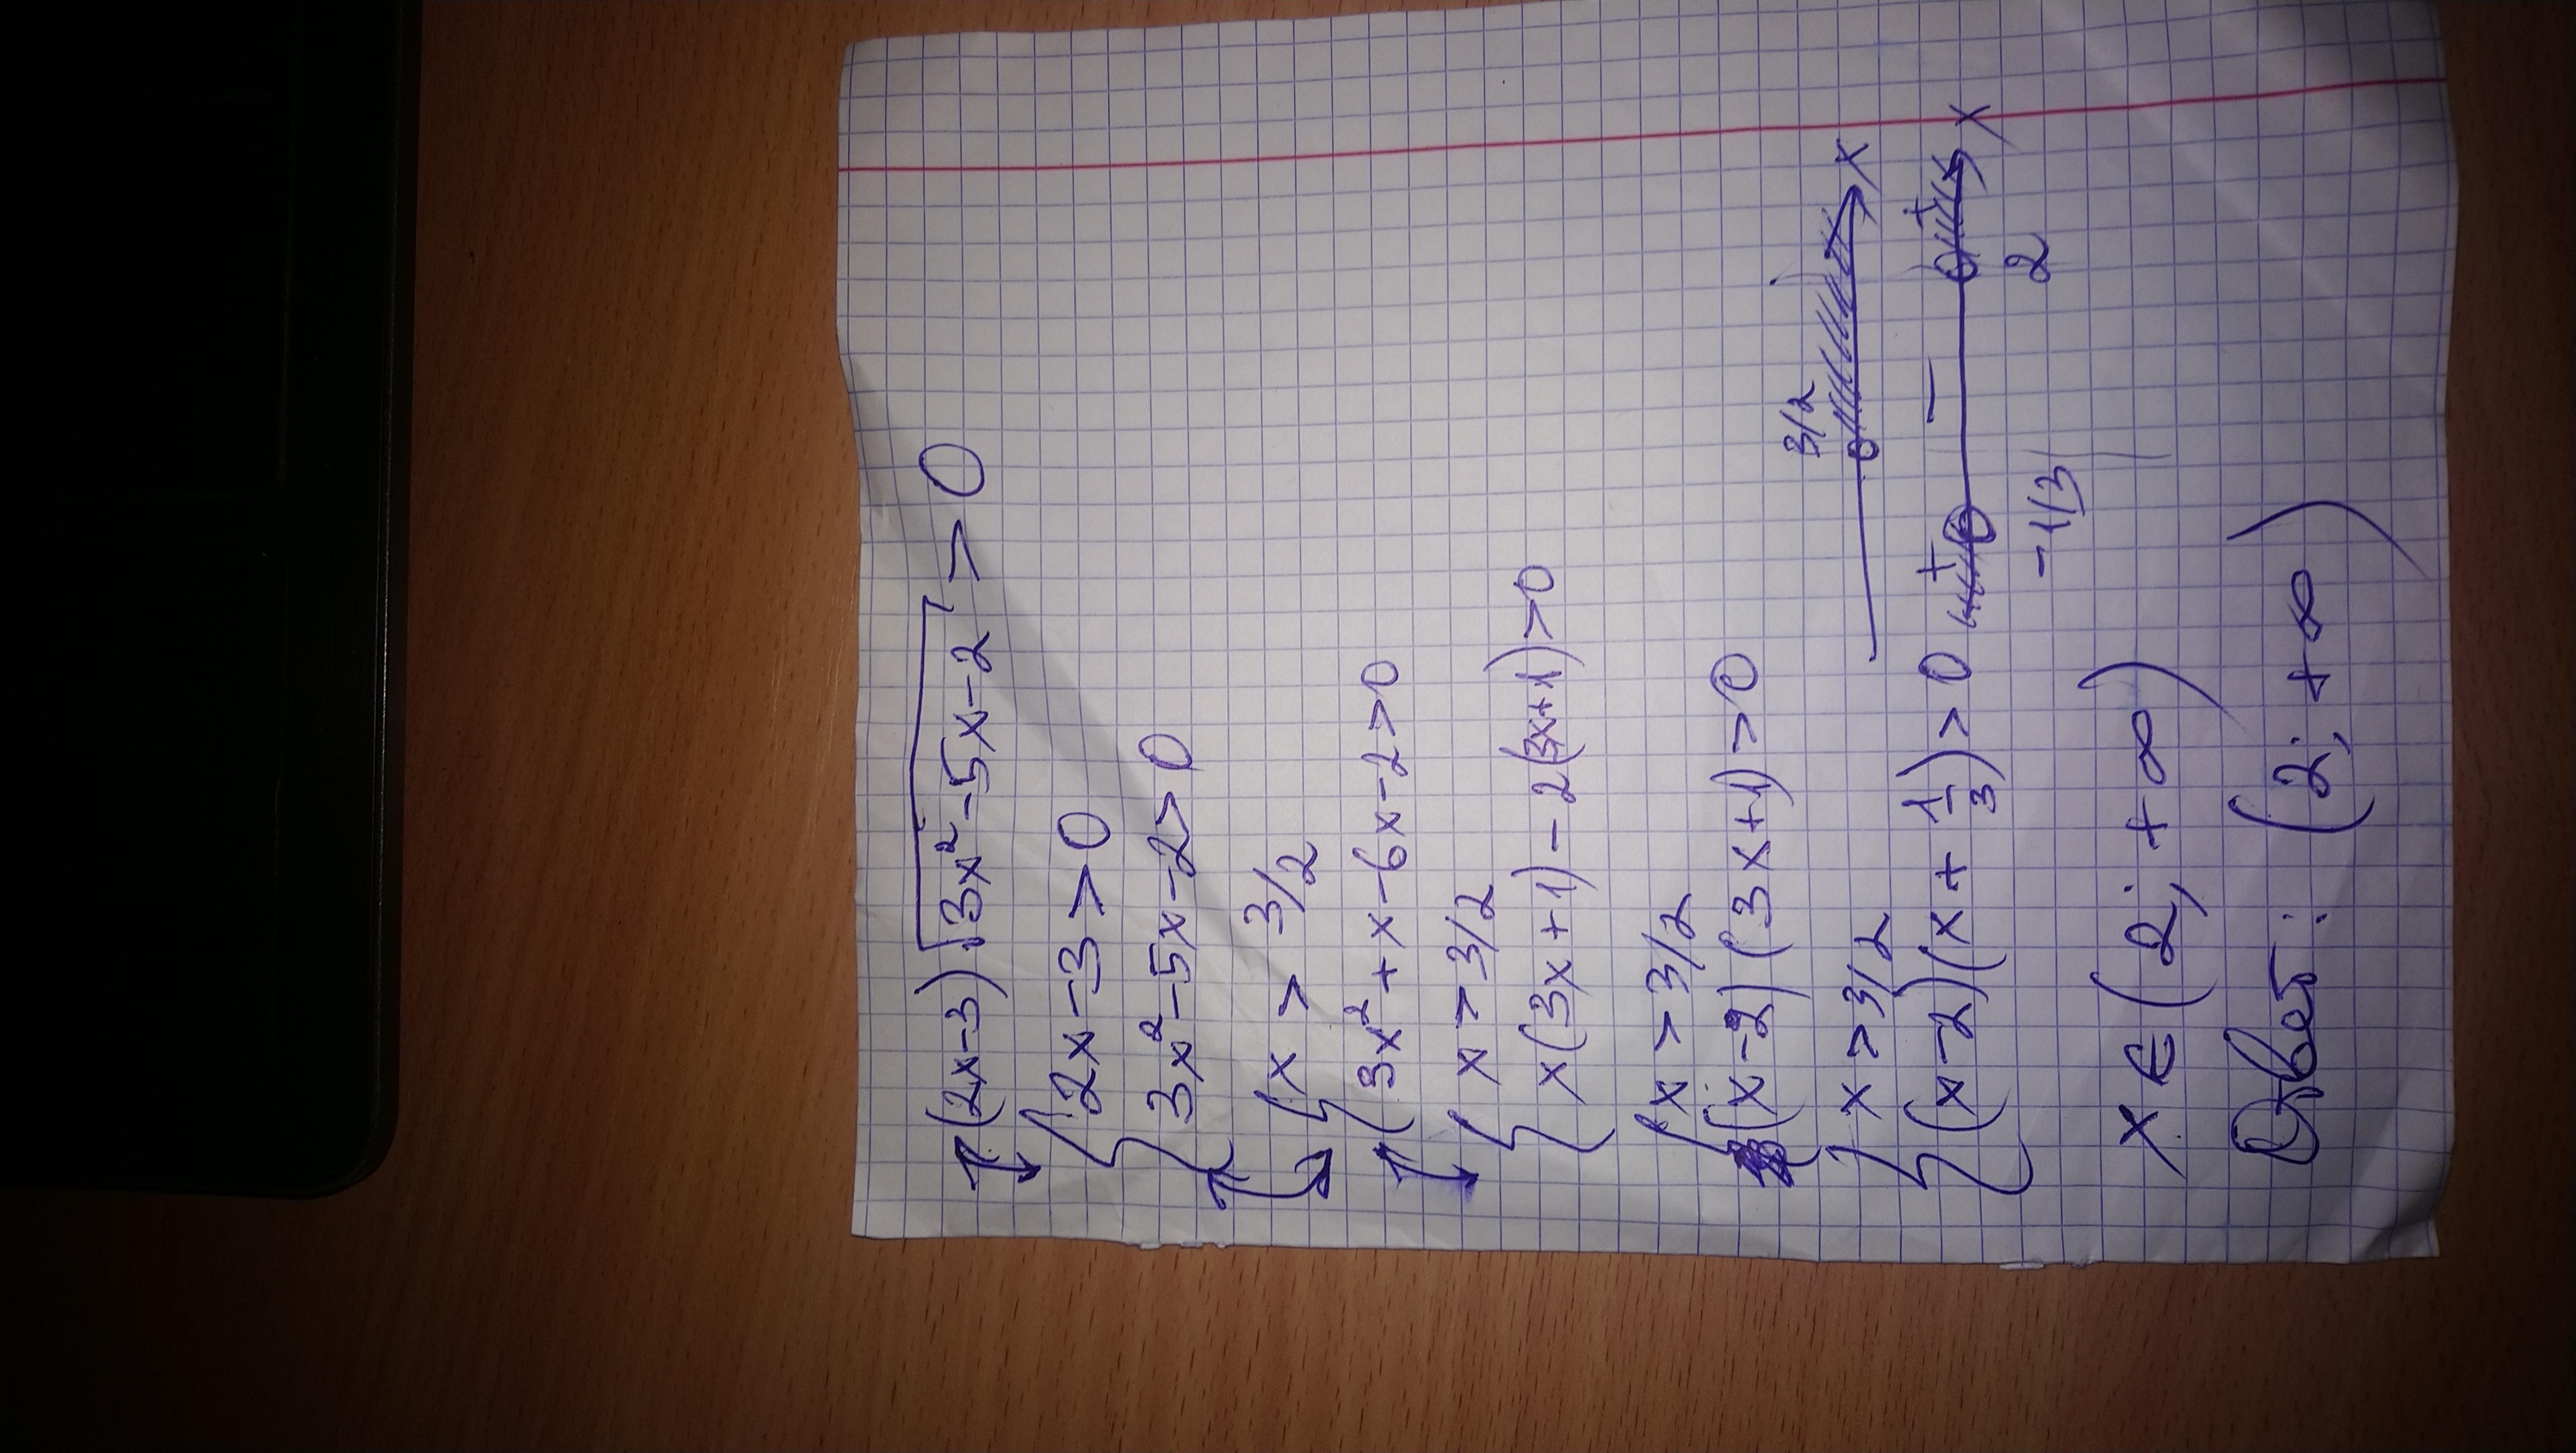 (2x-3)√3x²-5x-2 > 0
2x-3>0
3x²-5x-2>0
x > 3/2
3x²+x-6x-2>0
x > 3/2
x(3x+1)-2(3x+1)>0
x > 3/2
(x-2)(3x+1)>0
x > 3/2
3/2 x
(x-2)(x+1/3)>0
+ - + x
-1/3 2
x ∈ (2; +∞)
Ответ: (2; +∞)